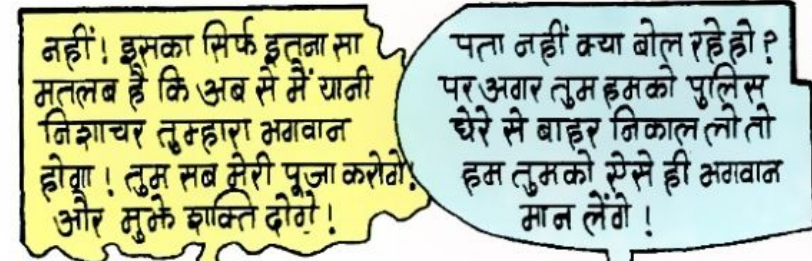 नहीं! इसका सिर्फ इतना सा
मतलब है कि अब से मैं यानी
निशाचर तुम्हारा भगवान
होगा! तुम सब मेरी पूजा करोगे!
और मुझे शक्ति दोगे!
पता नहीं क्या बोल रहे हो?
पर अगर तुम हमको पुलिस
घेरे से बाहर निकाल लो तो
हम तुमको ऐसे ही भगवान
मान लेंगे!